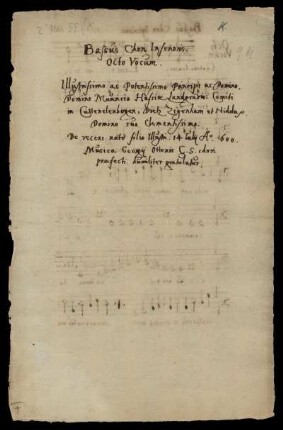 Bassus Chori Inferioris.
Octo Vocum.
Illustrissimo ac Potentissimo Principi ac Domino,
Domino Mauritio Hassiæ Landgravio Comiti
in Catzenelnbogen, Dietz Zigenhain et Nidda
Domino suo Clementissimo
De recens nato filio Illustri. 14 July Ao 1600.
Musica Georgij Ottonis C.S. chori
præfecti humiliter gratulatur.